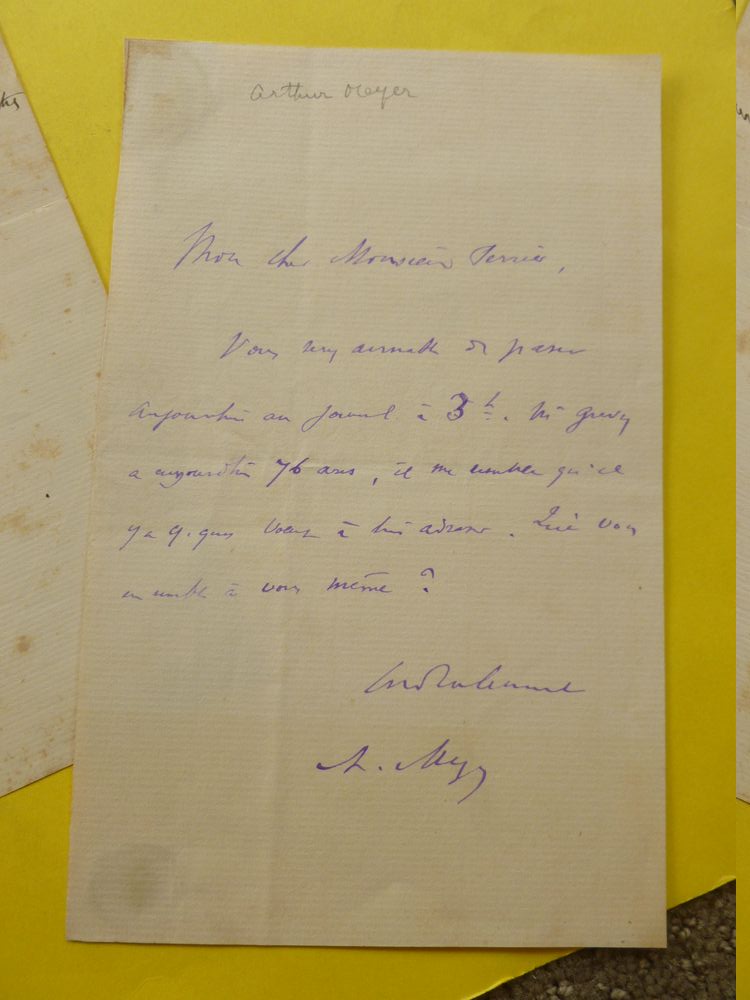 Arthur Meyer
Mon cher Monsieur Perrier,
Vous serez aimable de passer
aujourd'hui au Journal à 3 h. Mr Grevy
a aujourd'hui 76 ans, il me semble qu'il
y a q. ques voeux à lui adresser. Que vous
en semble à vous même ?
Cordialement
A. Meyer